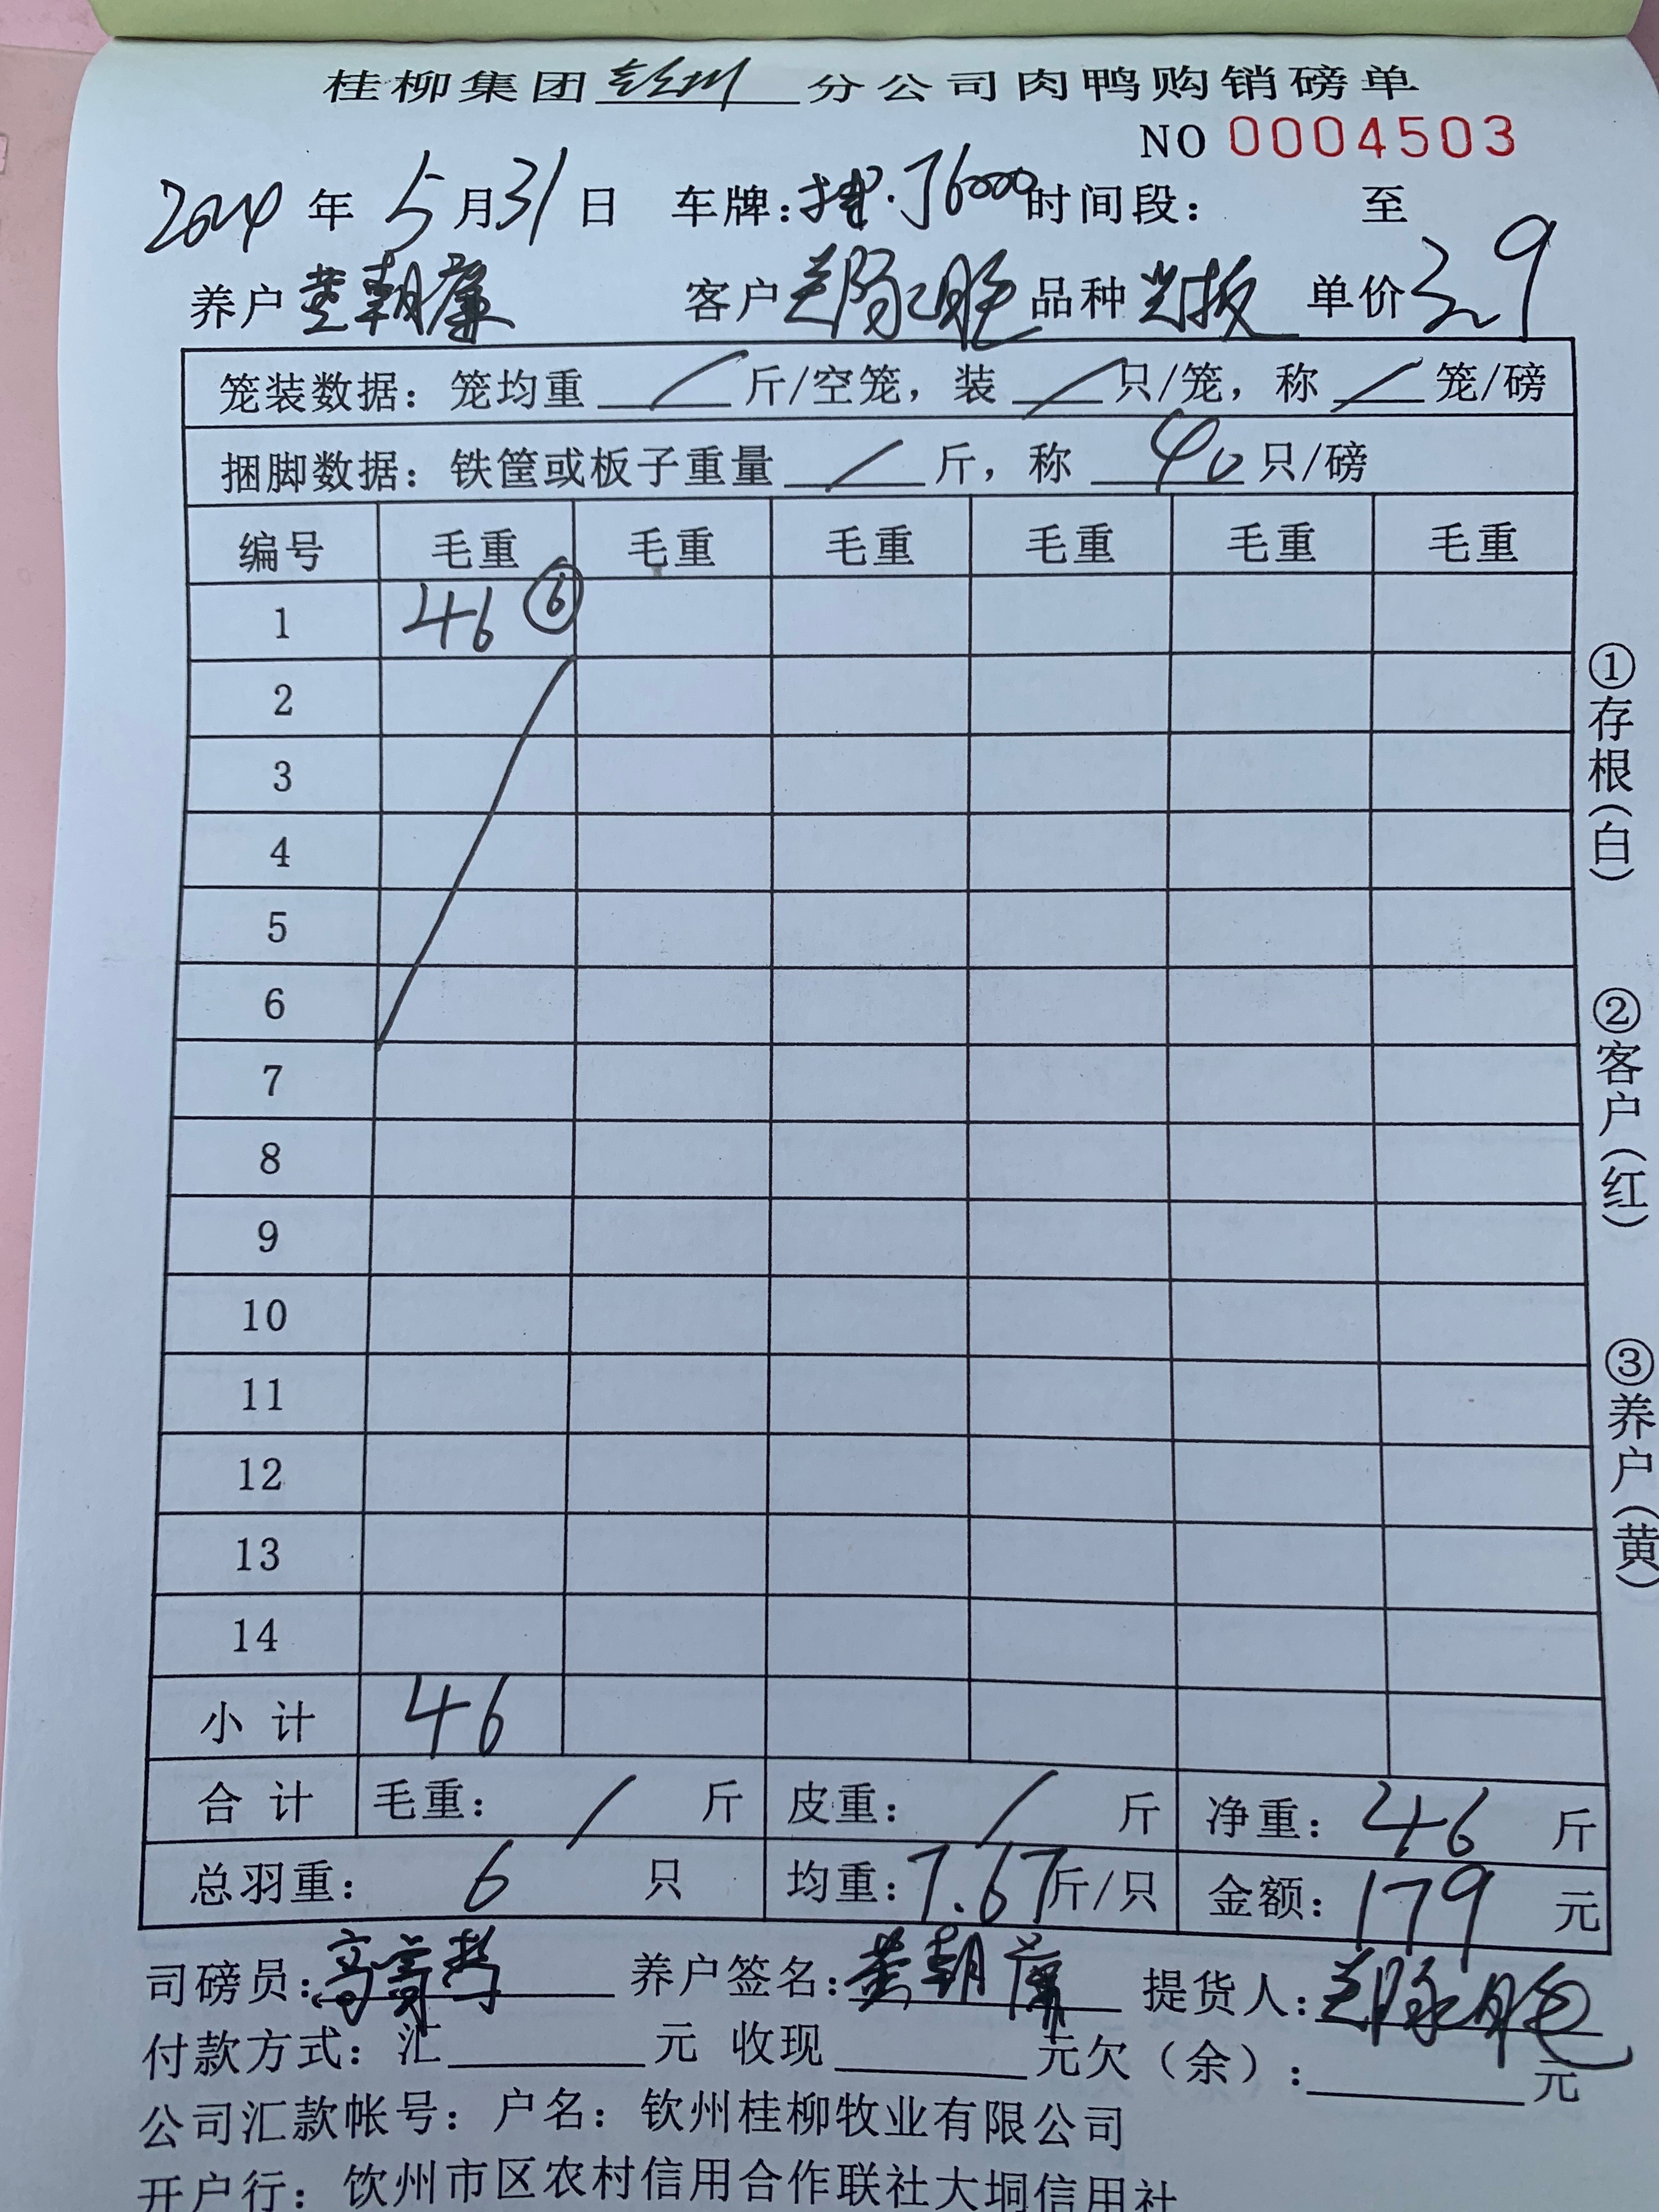 桂柳集团钦州分公司肉鸭购销磅单
NO 0004503
2024年5月31日 车牌:J6000时间段: 至
养户黄朝廉 客户 品种 单价3.9
笼装数据:笼均重/斤/空笼,装/只/笼,称/笼/磅
捆脚数据:铁筐或板子重量/斤,称40只/磅
编号 毛重 毛重 毛重 毛重 毛重 毛重
1 46 ⑥
2
3
4
5
6
7
8
9
10
11
12
13
14
小计 46
合计 毛重: / 斤 皮重: / 斤 净重: 46 斤
总羽重: 6 只 均重:7.67斤/只 金额:179元
司磅员: 养户签名:黄朝廉 提货人:
付款方式:汇 元 收现 元欠(余): 元
公司汇款帐号:户名:钦州桂柳牧业有限公司
开户行:钦州市区农村信用合作联社大垌信用社
①存根(白)
②客户(红)
③养户(黄)